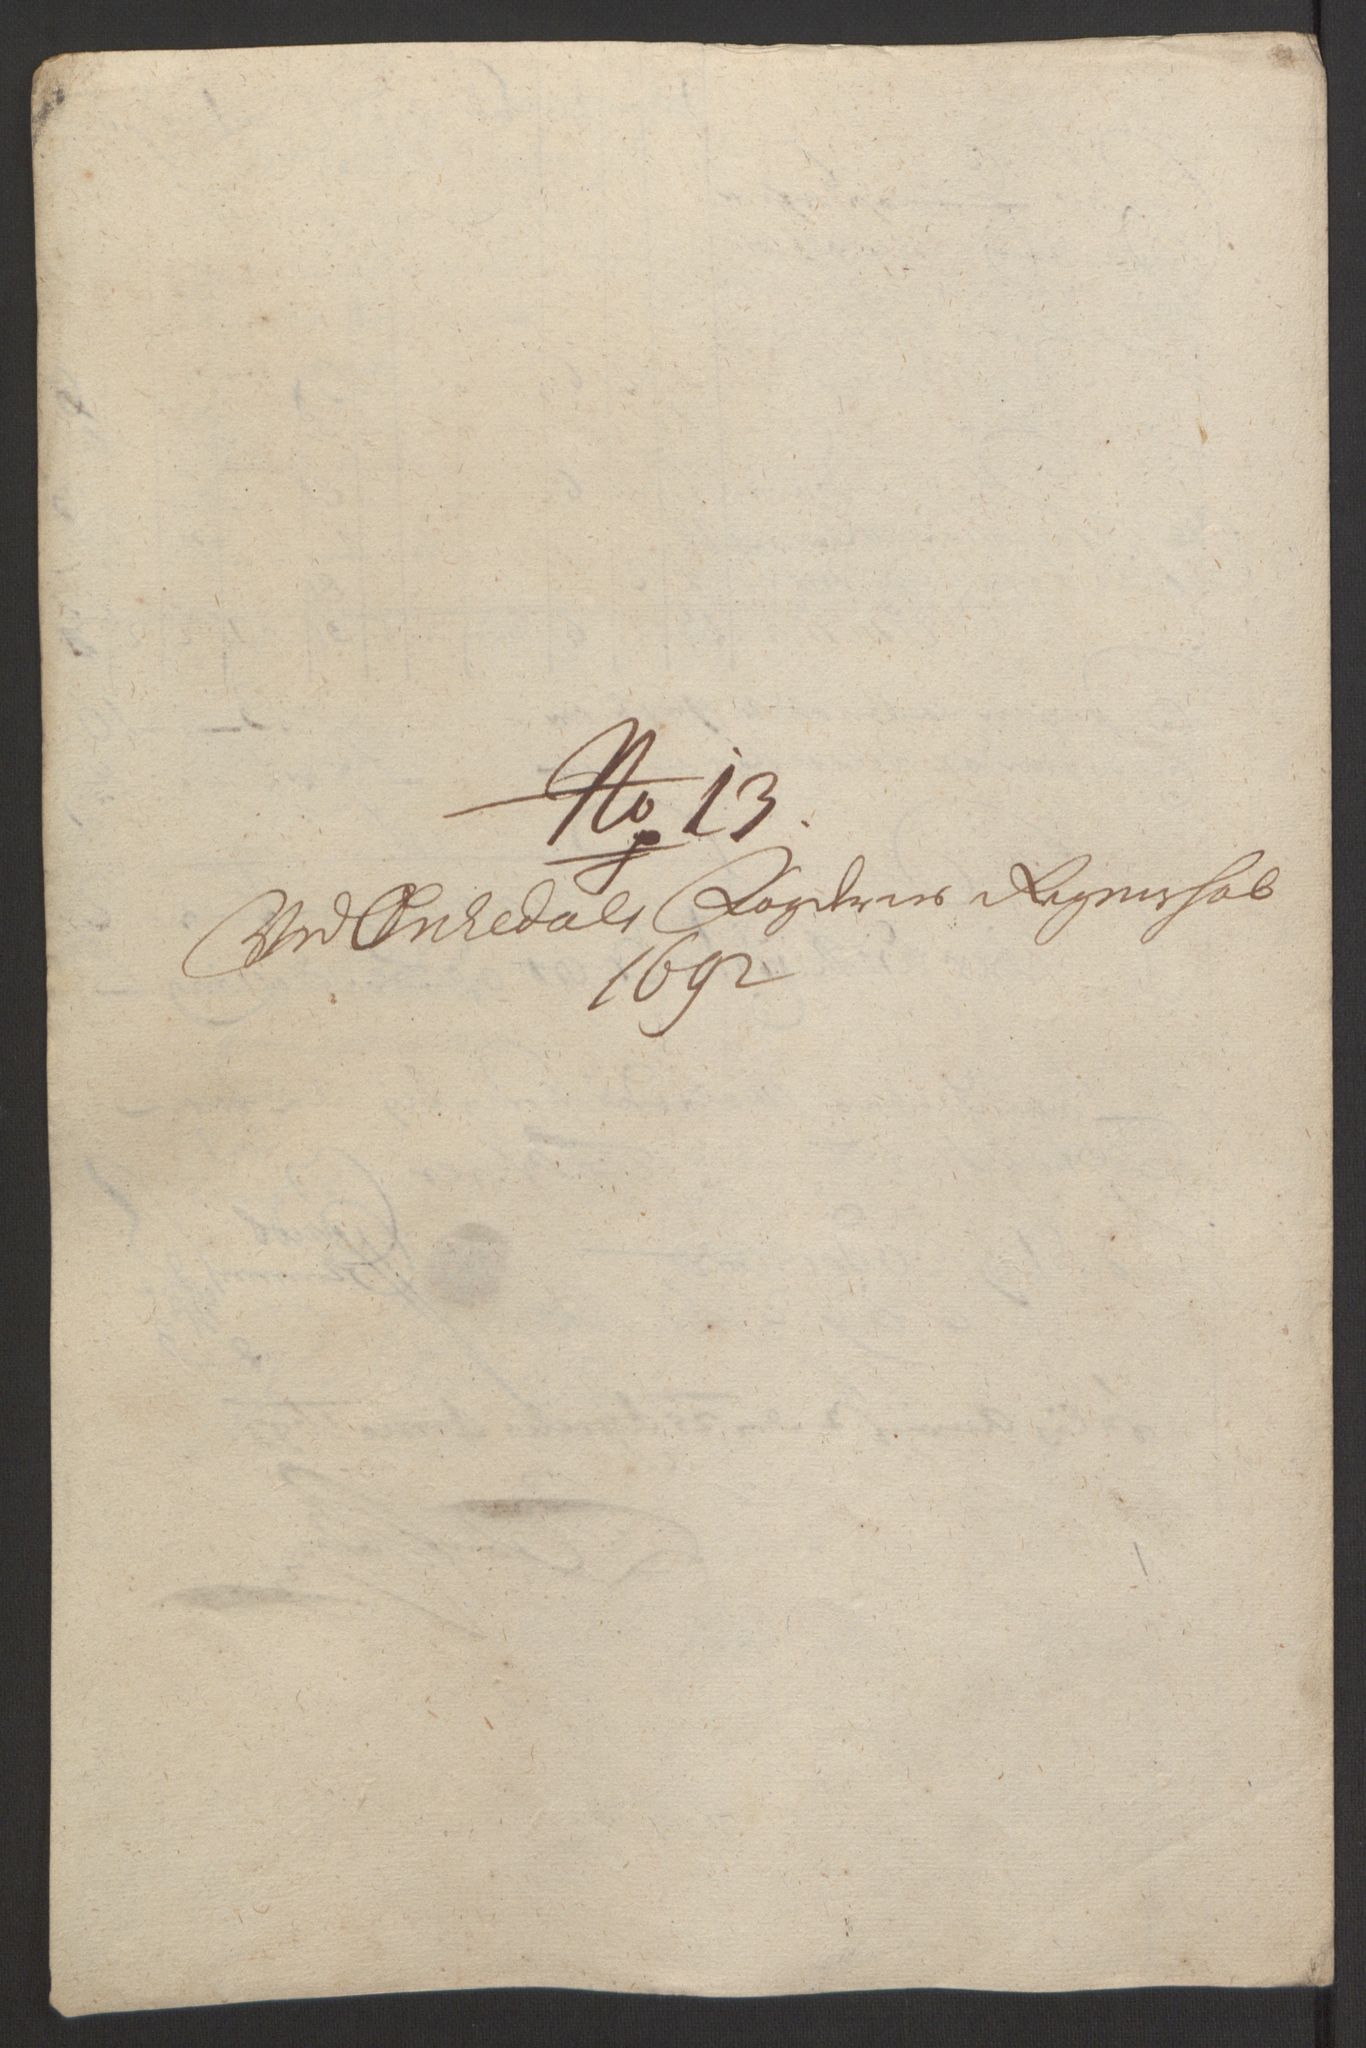 No 13.
Ved Orkedals Fogderies Regenshab
1692